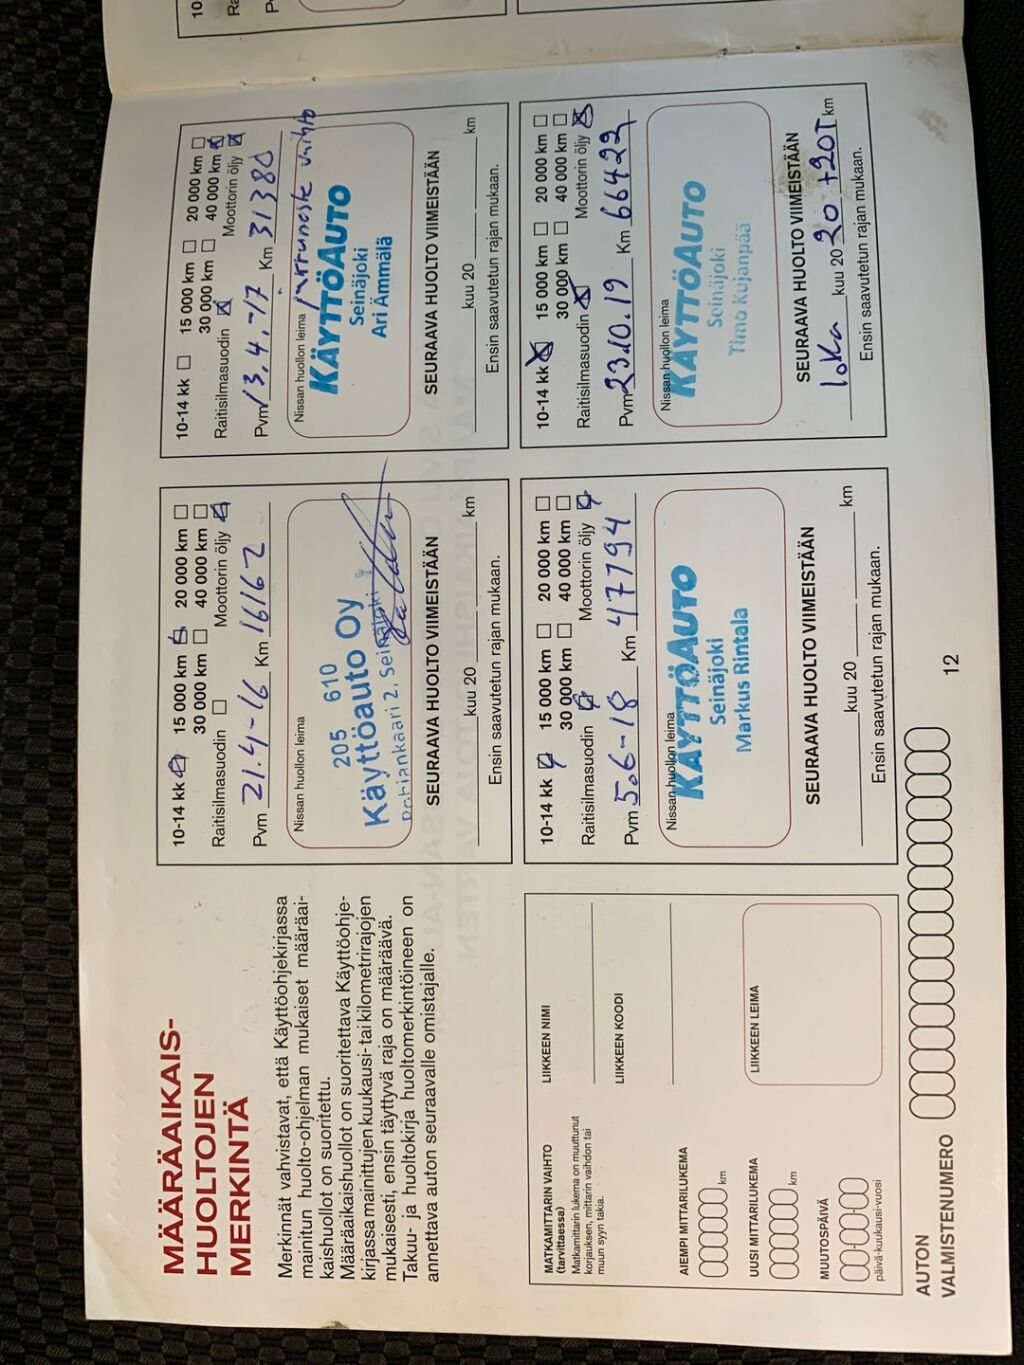 MÄÄRÄAIKAIS-
HUOLTOJEN
MERKINTÄ
Merkinnät vahvistavat, että Käyttöohjekirjassa
mainitun huolto-ohjelman mukaiset määräai-
kaishuollot on suoritettu.
Määräaikaishuollot on suoritettava Käyttöohje-
kirjassa mainittujen kuukausi- tai kilometrirajojen
mukaisesti, ensin täyttyvä raja on määräävä.
Takuu- ja huoltokirja huoltomerkintöineen on
annettava auton seuraavalle omistajalle.
10-14 kk 15 000 km 20 000 km
30 000 km 40 000 km
Raitisilmasuodin Moottorin öljy
Pvm 21.4-16 Km 16162
Nissan huollon leima
205 610
Käyttöauto Oy
2, Seinäjoki
SEURAAVA HUOLTO VIIMEISTÄÄN
kuu 20 km
Ensin saavutetun rajan mukaan.
10-14 kk 15 000 km 20 000 km
30 000 km 40 000 km
Raitisilmasuodin Moottorin öljy
Pvm 13.4.-17 Km 31380
Nissan huollon leima vaihto
KÄYTTÖAUTO
Seinäjoki
Ari Ammälä
SEURAAVA HUOLTO VIIMEISTÄÄN
kuu 20 km
Ensin saavutetun rajan mukaan.
MATKAMITTARIN VAIHTO
(tarvittaessa)
Matkamittarin lukema on muuttunut
korjauksen, mittarin vaihdon tai
muun syyn takia.
LIIKKEEN NIMI
LIIKKEEN KOODI
AIEMPI MITTARILUKEMA
km
UUSI MITTARILUKEMA
km
LIIKKEEN LEIMA
MUUTOSPÄIVÄ
päivä-kuukausi-vuosi
10-14 kk 15 000 km 20 000 km
30 000 km 40 000 km
Raitisilmasuodin Moottorin öljy
Pvm 5.6-18 Km 47794
Nissan huollon leima
KÄYTTÖAUTO
Seinäjoki
Markus Rintala
SEURAAVA HUOLTO VIIMEISTÄÄN
kuu 20 km
Ensin saavutetun rajan mukaan.
10-14 kk 15 000 km 20 000 km
30 000 km 40 000 km
Raitisilmasuodin Moottorin öljy
Pvm 23.10.19 Km 66422
Nissan huollon leima
KÄYTTÖAUTO
Seinäjoki
Timo Kujanpää
SEURAAVA HUOLTO VIIMEISTÄÄN
loka kuu 20 20 +20T km
Ensin saavutetun rajan mukaan.
AUTON
VALMISTENUMERO
12